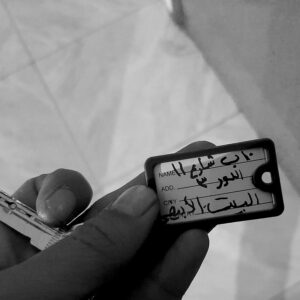 NAME باب شارع ١١
ADD. الدور ٣
CITY البيت الأبيض